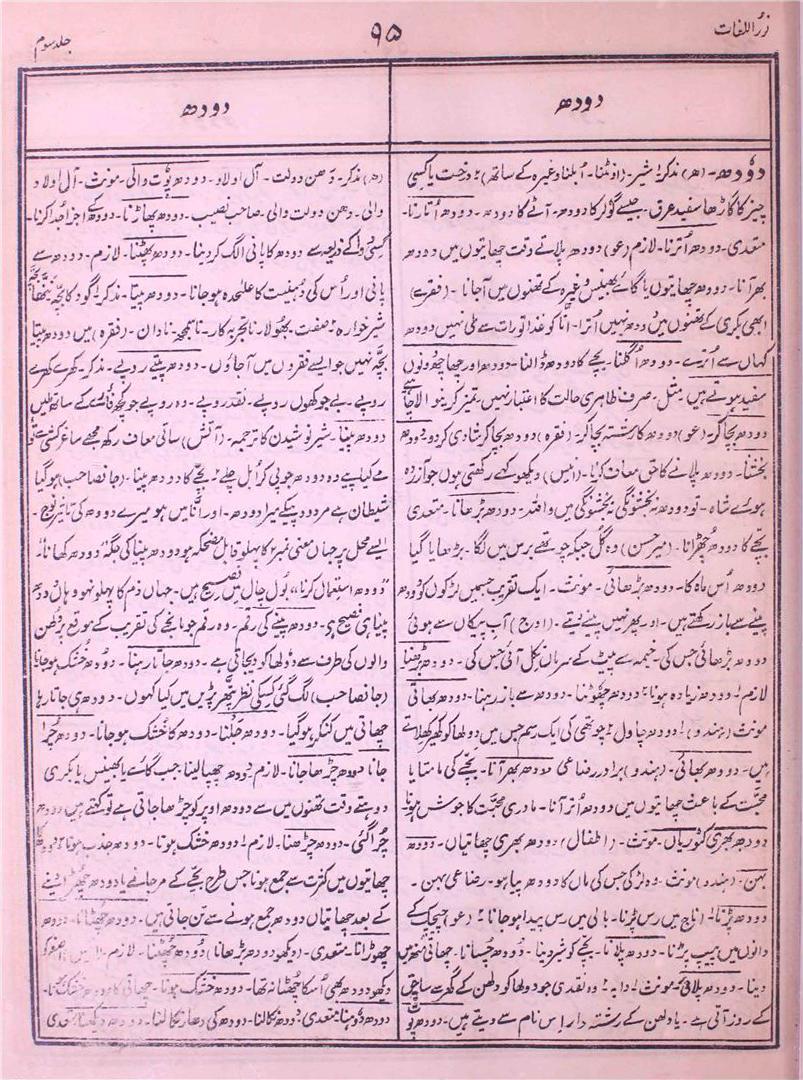 نورُ اللغات
۹۵
جلد سوم
دودھ
دودھ
دُودھ۔ (ھ) مذکر۔ شیر۔ (اونٹنا۔ اُبلنا وغیرہ کے ساتھ) ۲ درخت یا کسی
چیز کا گاڑھا سفید عرق۔ جیسے گولر کا دودھ۔ آٹے کا دودھ۔ دودھ اُتارنا۔
متعدی۔ دودھ اُترنا۔ لازم (عو) دودھ پلاتے وقت چھاتیوں میں دودھ
بھر آنا۔ دودھ چھاتیوں یا گائے بھینس وغیرہ کے تھنوں میں آجانا۔ (فقرے)
ابھی بکری کے تھنوں میں دودھ نہیں اُترا۔ انّا کو غذا تو رات سے ملی نہیں دودھ
کہاں سے اُترے۔ دودھ اُگلنا۔ بچے کا دودھ ڈالنا۔ دودھ اور چھاچھ دونوں
سفید ہوتے ہیں۔ مثل۔ صرف ظاہری حالت کا اعتبار نہیں تمیز کرنیوالا چاہئے
دودھ بچا کر۔ (عو) دودھ کا رشتہ بچا کر۔ (فقرہ) دودھ بچا کر شادی کردو۔ دودھ
بخشنا۔ دودھ پلانے کا حق معاف کرنا۔ (انیس) دیکھو کہے رکھتی ہوں جو آزردہ
ہوئے شاہ۔ تو دودھ نہ بخشونگی نہ بخشونگی میں واللہ۔ دودھ بڑھانا۔ متعدی
بچے کا دودھ چھڑانا۔ (میر حسن) وہ گُل جبکہ چوتھے برس میں لگا۔ بڑھایا گیا
دودھ اُس ماہ کا۔ دودھ بڑھائی۔ مونث۔ ایک تقریب جسمیں لڑکوں کو دودھ
پینے سے باز رکھتے ہیں۔ اور پھر نہیں پینے دیتے۔ (اوج) آب پیکاں سے ہوئی
دودھ بڑھائی جس کی۔ خیمہ سے پیٹ کے سر ماں نکل آئی جس کی۔ دودھ بڑھنا
لازم۔ دودھ زیادہ ہونا ۲ دودھ چھوٹنا۔ دودھ سے باز رہنا۔ دودھ بھاتی
مونث (ہندو) ۱ دودھ چاول ۲ چوتھی کی ایک رسم جس میں دولھا کو کھیر کھلاتے
ہیں۔ دودھ بھائی۔ (ہندو) برادر رضاعی دودھ بھر آنا۔ بچے کی مامتا یا
محبت کے باعث چھاتیوں میں دودھ اُتر آنا۔ مادری محبت کا جوش ہونا
دودھ بھری کٹوریاں۔ مونث۔ (اطفال) دودھ بھری چھاتیاں۔ دودھ
بہن۔ (ہندو) مونث۔ وہ لڑکی جس کی ماں کا دودھ پیا ہو۔ رضاعی بہن۔
دودھ پڑنا۔ ۱ اناج میں رس پڑنا۔ بالی میں رس پیدا ہوجانا ۲ (عو) چیچک کے
دانوں میں پیپ پڑنا۔ دودھ پلانا۔ بچے کو شیر دینا۔ دودھ چُسانا۔ چھاتی منہ میں
دینا۔ دودھ پلائی۔ مونث۔ ۱ دایہ ۲ وہ نقدی جو دولھا کو دلھن کے گھر سے ساچق
کے روز آتی ہے۔ یا دلھن کے رشتہ دار اِس نام سے دیتے ہیں۔ دودھ پُوت
(ھ) مذکر۔ دَھن دولت۔ آل اولاد۔ دودھ پُوت والی۔ مونث۔ آل اولاد
والی۔ دھن دولت والی۔ صاحب نصیب۔ دودھ پھاڑنا۔ دودھ کے اجزا جدا کرنا۔
کسی دوا کے ذریعہ سے دودھ کا پانی الگ کر دینا۔ دودھ پھٹنا۔ لازم۔ دودھ سے
پانی اور اُس کی دُہنیت کا علٰحدہ ہو جانا۔ دودھ پیتا۔ مذکر۔ گود کا بچّہ ننھا بچّہ
شیر خوارہ ۲ صفت۔ بھولا۔ ناتجربہ کار۔ ناسمجھ۔ نادان۔ (فقرہ) میں دودھ پیتا
بچّہ نہیں جو ایسے فقروں میں آجاؤں۔ دودھ پیتے روپے۔ مذکر۔ کھرے کھرے
روپے۔ بے جوکھوں روپے۔ نقد روپے۔ وہ روپے جو کچھ فائدے کے ساتھ ملیں
دودھ پینا۔ شیر نوشیدن کا ترجمہ۔ (آتش) ساقی معاف رکھ مجھے ساغر کشی تو
مے کیا پیے وہ دودھ جو پی کر اُبل چلے ۲ بچّے کا دودھ پینا۔ (جانصاحب) ہوگیا
شیطان ہے مردود پیکے میرا دودھ۔ اور انّا میں ہو میرے دودھ کی تاثیر نوج۔
ایسے محل پر جہاں معنی نمبر ۲ کا پہلو قابل مضحکہ ہو دودھ پینا کی جگہ "دودھ کھانا"
"دودھ استعمال کرنا" بول چال میں فصیح ہیں۔ جہاں ذم کا پہلو نہو وہاں دودھ
پینا ہی فصیح ہی۔ دودھ پینے کی رقم۔ وہ رقم جو مانجھے کی تقریب کے موقع پر دُلھن
والوں کی طرف سے دولھا کو دیجاتی ہے۔ دودھ جاتا رہنا۔ دودھ خشک ہوجانا
(جانصاحب) لگ گئی کِسکی نظر پتھر پڑیں میں کیا کہوں۔ دودھ ہی جاتا رہا
چھاتی میں کنکر ہوگیا۔ دودھ جلنا۔ دودھ کا خشک ہوجانا۔ دودھ چُرا
جانا دودھ چڑھا جانا۔ لازم۔ دودھ چھپا لینا۔ جب گائے یا بھینس یا بکری
دوہتے وقت تھنوں میں سے دودھ اوپر کو چڑھا جاتی ہے تو کہتے ہیں دودھ
چُرا گئی۔ دودھ چڑھنا۔ لازم ۱ دودھ خشک ہونا۔ دودھ جذب ہونا ۲ دودھ کا
چھاتیوں میں کثرت سے جمع ہونا جس طرح بچّے کے مرجانے یا دودھ چھڑا لینے
کے بعد چھاتیاں دودھ جمع ہونے سے تن جاتی ہیں۔ دودھ چھٹانا۔ دودھ
چھوڑانا۔ متعدی۔ (دیکھو دودھ بڑھانا) دودھ چھٹنا۔ لازم۔
دیکھو دودھ بھی اُسکا چھٹا نہ تھا۔ دودھ خشک ہونا۔ چھاتی کا دودھ خشک ہونا۔
دودھ دوہنا۔ متعدی۔ دودھ نکالنا۔ دودھ کی دھار نکالنا۔ دودھ